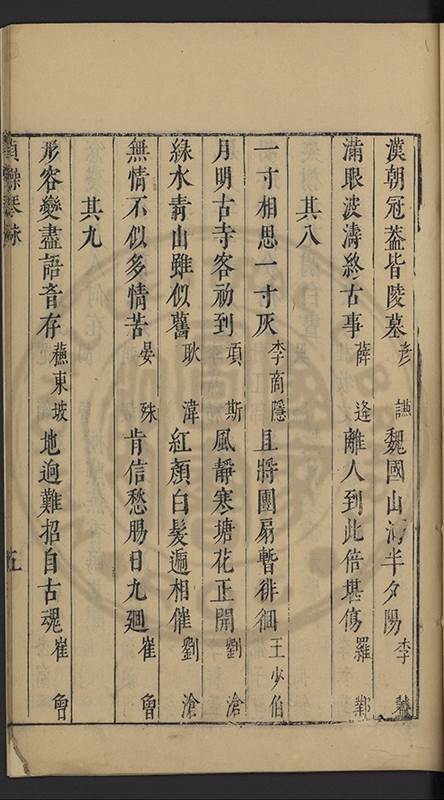 漢朝冠葢皆陵墓 彦謙 魏國山河半夕陽 李益
滿眼波濤終古事 薛逢 離人到此倍堪傷 羅鄴
其八
一寸相思一寸灰 李商隱 且將團扇暫徘徊 王少伯
月明古寺客初到 項斯 風靜寒塘花正開 劉滄
綠水青山雖似舊 耿湋 紅顏白髮遞相催 劉滄
無情不似多情苦 晏殊 肯信愁腸日九廻 崔魯
其九
形容變盡語音存 蘇東坡 地迥難招自古魂 崔魯
五